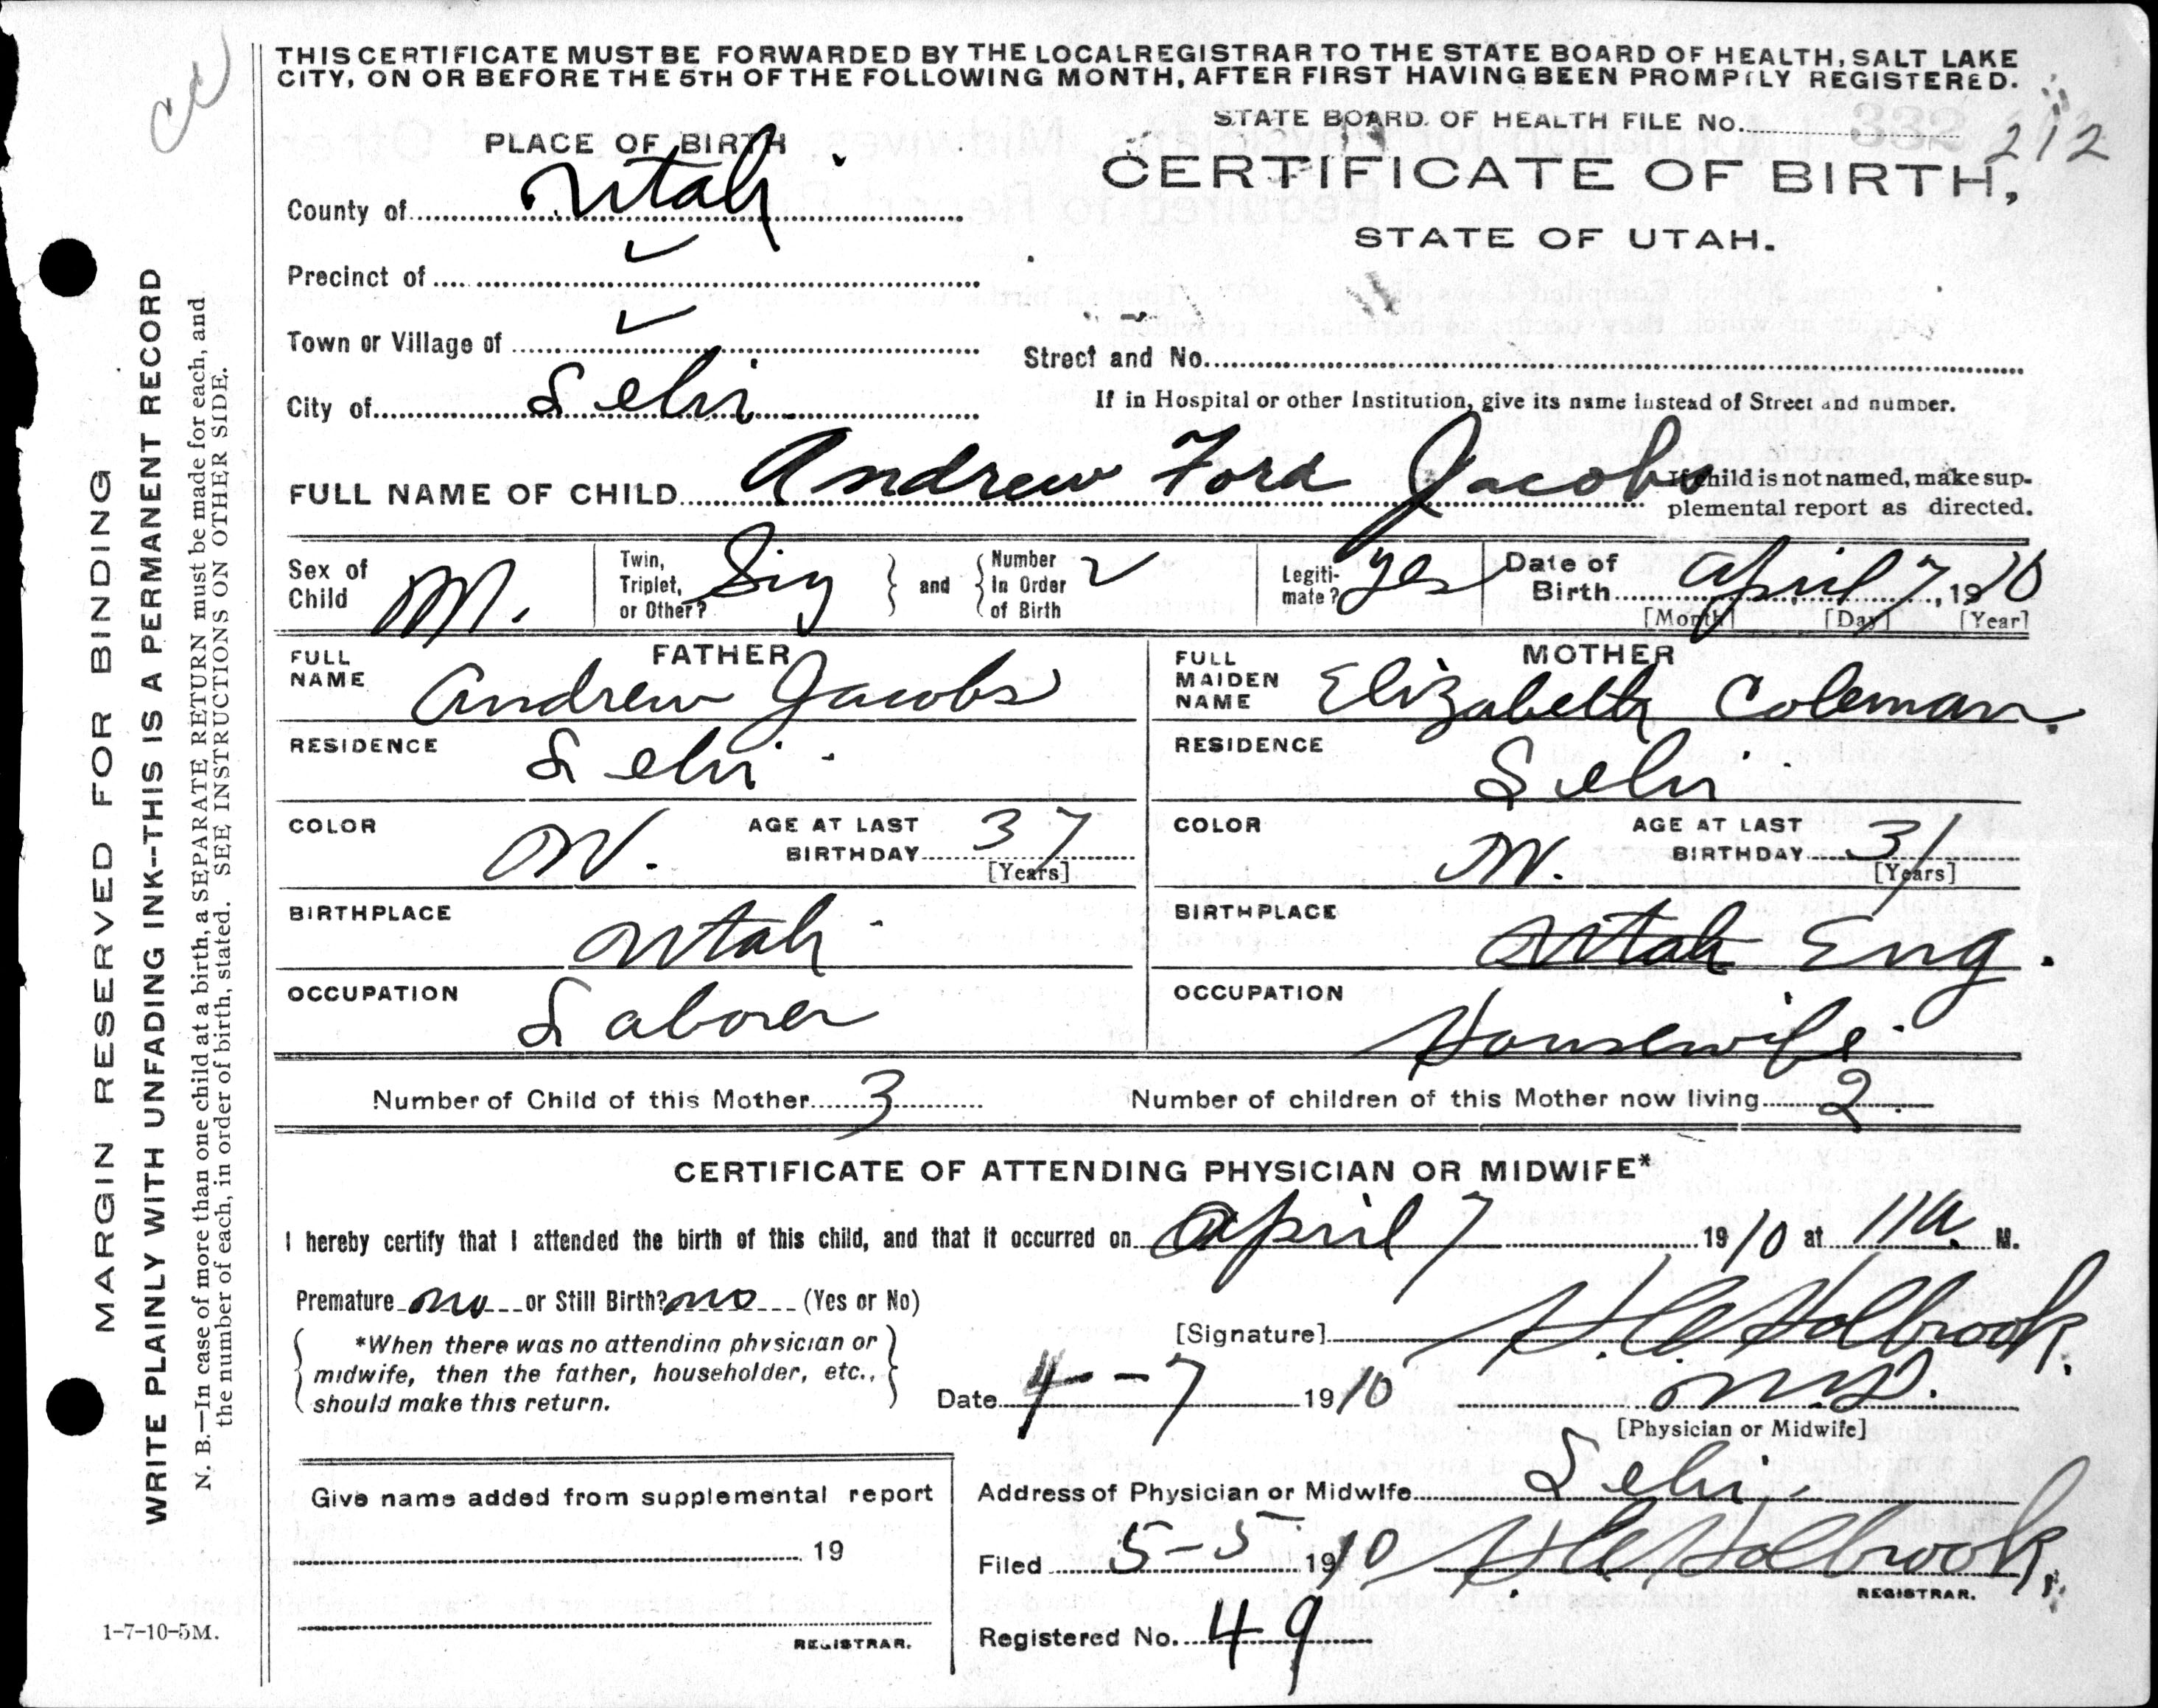 THIS CERTIFICATE MUST BE FORWARDED BY THE LOCAL REGISTRAR TO THE STATE BOARD OF HEALTH, SALT LAKE
CITY, ON OR BEFORE THE 5TH OF THE FOLLOWING MONTH, AFTER FIRST HAVING BEEN PROMPTLY REGISTERED.
STATE BOARD OF HEALTH FILE No. 332 212
PLACE OF BIRTH
CERTIFICATE OF BIRTH,
County of Utah
STATE OF UTAH.
Precinct of
Town or Village of
Street and No.
City of Lehi
If in Hospital or other Institution, give its name instead of Street and number.
FULL NAME OF CHILD Andrew Ford Jacobs
If child is not named, make sup-
plemental report as directed.
Sex of Child M.
Twin, Triplet, or Other? Sing and Number in Order of Birth
Legiti-mate? yes
Date of Birth April 7, 1910
[Month] [Day] [Year]
FATHER
FULL NAME Andrew Jacobs
RESIDENCE Lehi
COLOR W. AGE AT LAST BIRTHDAY 37
[Years]
BIRTHPLACE Utah
OCCUPATION Laborer
MOTHER
FULL MAIDEN NAME Elizabeth Coleman
RESIDENCE Lehi
COLOR W. AGE AT LAST BIRTHDAY 31
[Years]
BIRTHPLACE Utah Eng.
OCCUPATION Housewife
Number of Child of this Mother 3 Number of children of this Mother now living 2
CERTIFICATE OF ATTENDING PHYSICIAN OR MIDWIFE*
I hereby certify that I attended the birth of this child, and that it occurred on April 7 1910 at 11 a. M.
Premature no or Still Birth? no (Yes or No)
*When there was no attending physician or
midwife, then the father, householder, etc.,
should make this return.
[Signature] Holbrook
Date 4-7 1910 M.D.
[Physician or Midwife]
Give name added from supplemental report
19
REGISTRAR.
Address of Physician or Midwife Lehi
Filed 5-5 1910 Holbrook
REGISTRAR.
Registered No. 49
1-7-10-5M.
MARGIN RESERVED FOR BINDING
WRITE PLAINLY WITH UNFADING INK--THIS IS A PERMANENT RECORD
N. B.—In case of more than one child at a birth, a SEPARATE RETURN must be made for each, and
the number of each, in order of birth, stated. SEE INSTRUCTIONS ON OTHER SIDE.